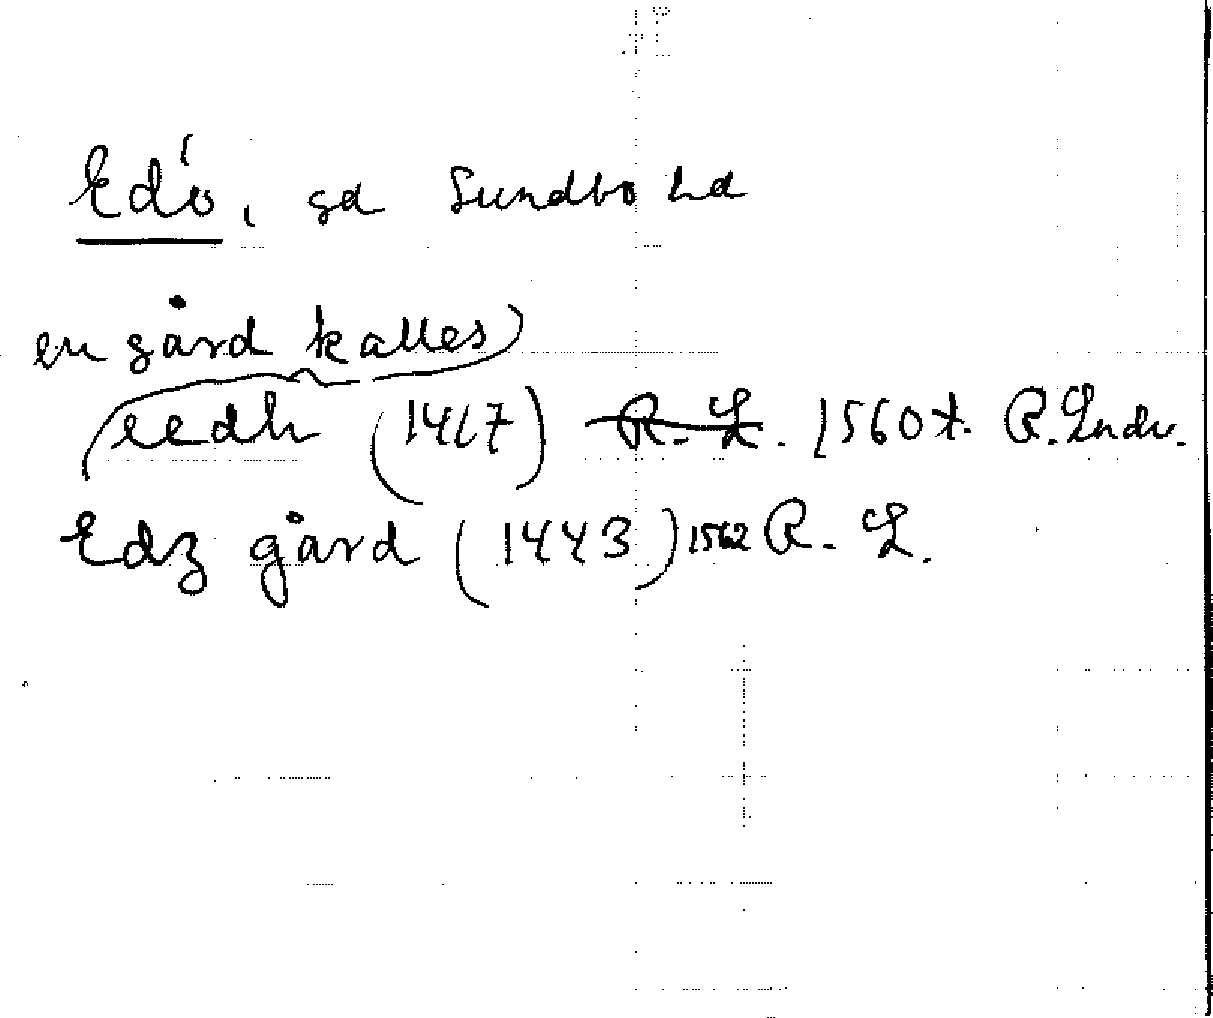 Edö, gd Sundbo hd
en gård kalles
eedh (1467) R. L. 1560 t. R. Lndv.
Edz gård (1443) 1562 R. L.